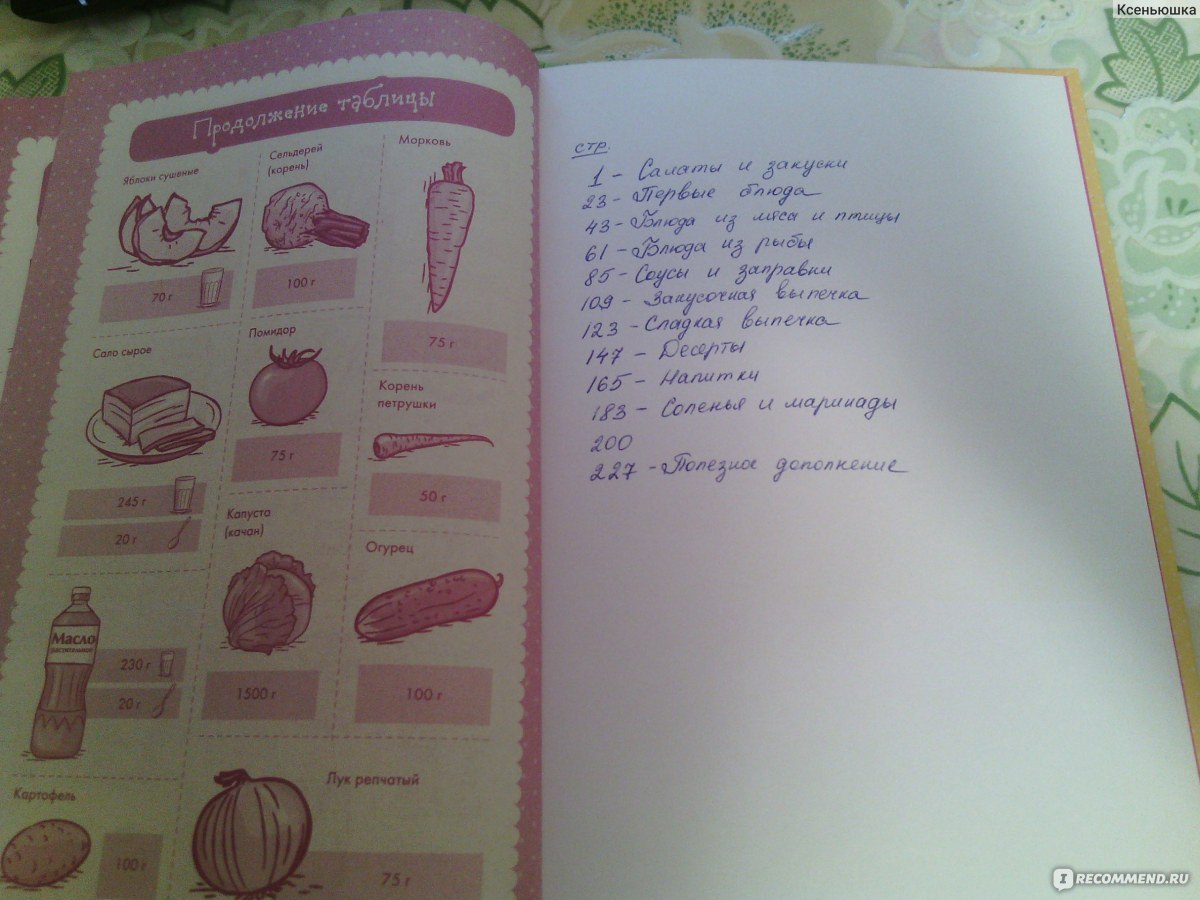 Ксеньюшка
Продолжение таблицы
Яблоки сушеные
70 г
Сельдерей
(корень)
100 г
Морковь
75 г
Сало сырое
245 г
20 г
Помидор
75 г
Корень
петрушки
50 г
Масло
растительное
230 г
20 г
Капуста
(качан)
1500 г
Огурец
100 г
Картофель
100 г
Лук репчатый
75 г
стр.
1 - Салаты и закуски
23 - Первые блюда
43 - Блюда из мяса и птицы
61 - Блюда из рыбы
85 - Соусы и заправки
109 - Закусочная выпечка
123 - Сладкая выпечка
147 - Десерты
165 - Напитки
183 - Соленья и маринады
200
227 - Полезное дополнение
RECOMMEND.RU